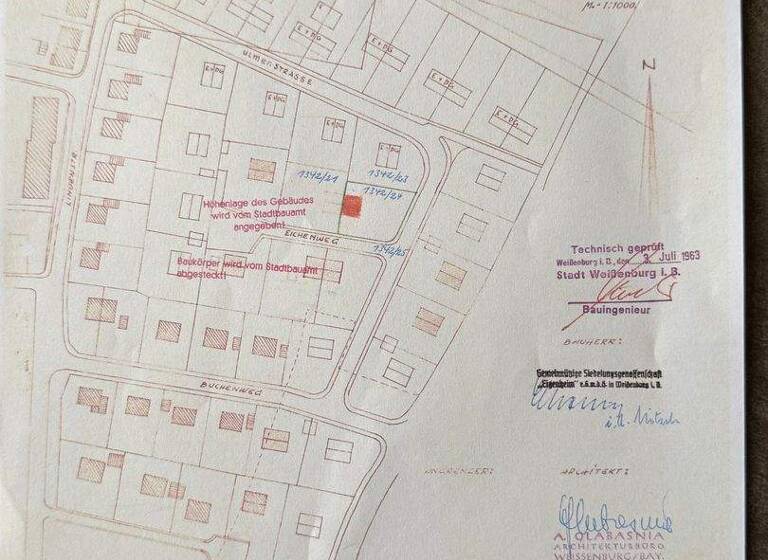 M. = 1:1000
ULMERSTRASSE
E+DG
E+DG
E+DG
E+DG
E+DG
E+DG
E+DG
E+DG
N
LINDENSTR
1342/21
1342/23
1342/24
Höhenlage des Gebäudes
wird vom Stadtbauamt
angegeben!
EICHENWEG
1342/25
Baukörper wird vom Stadtbauamt
abgesteckt!
Technisch geprüft
Weißenburg i. B., den 3. Juli 1963
Stadt Weißenburg i. B.
Bauingenieur
BAUHERR:
Gemeinnützige Siedelungsgenossenschaft
„Eigenheim" e.G.m.b.H. in Weißenburg i. B.
BUCHENWEG
ANGRENZER:
ARCHITEKT:
A. OLABASNIA
ARCHITEKTURBÜRO
WEISSENBURG/BAY.